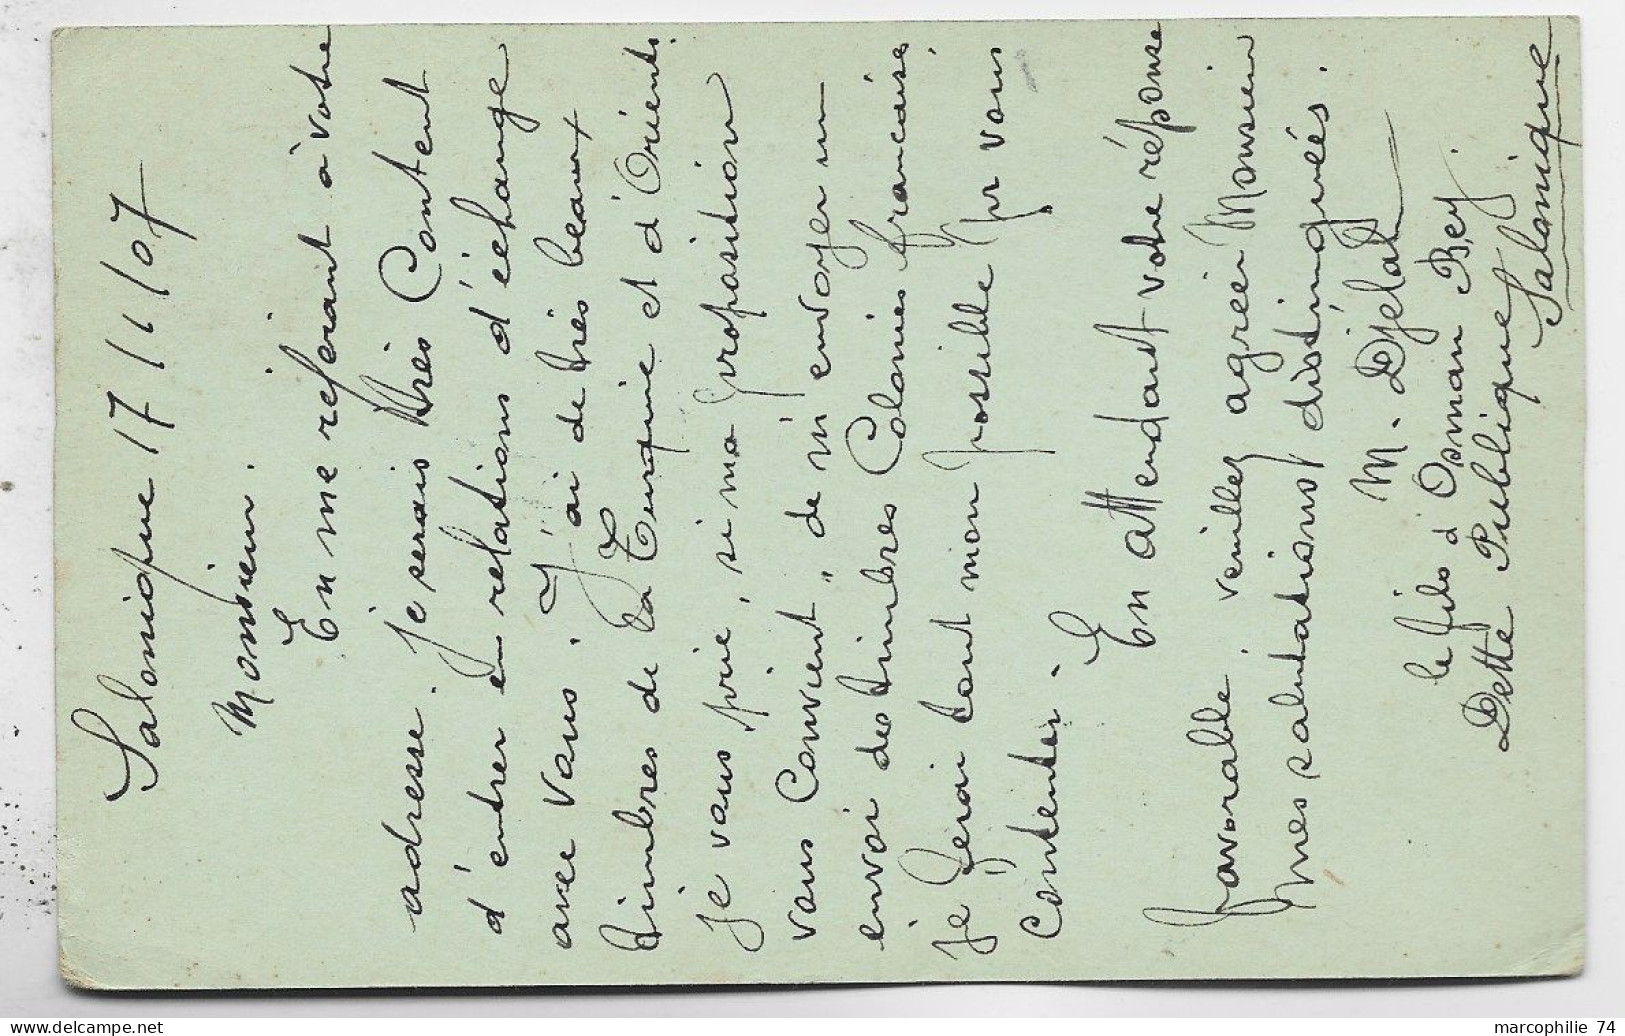 Salonique 17/1/07
Monsieur.
En me referant à votre
adresse. je serais très Content
d'entrer en relations d'échange
avec vous. J'ai de très beaux
timbres de la Turquie et d'Orient.
je vous prie, si ma proposition
vous Convient, de m'envoyer un
envoi des timbres Colonies francaises,
je ferai tout mon possible pr vous
Contenter.
En attendant votre réponse
favorable, veuillez agréer Monsieur
mes salutations distinguées.
M. Djélal
le fils d'Osman Bey
Dette Publique
Salonique
marcophilie 74